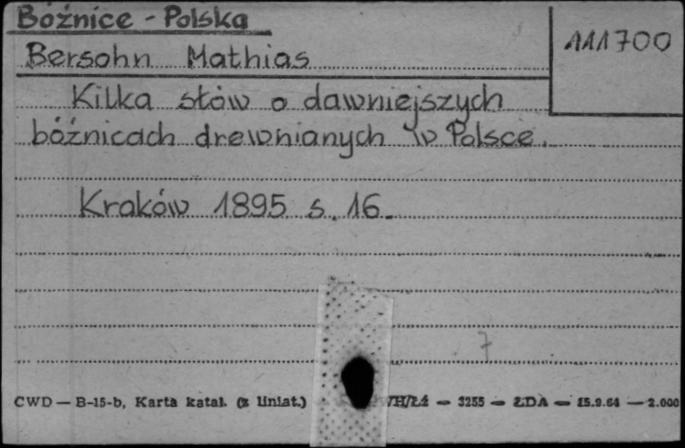 Bóżnice - Polska
111700
Bersohn Mathias
Kilka słów o dawniejszych
bóżnicach drewnianych w Polsce.
Kraków 1895 s. 16.
7
CWD — B-15-b, Karta katal. (z liniat.) — 3255 — ŁDA — 15.9.64 — 2.000